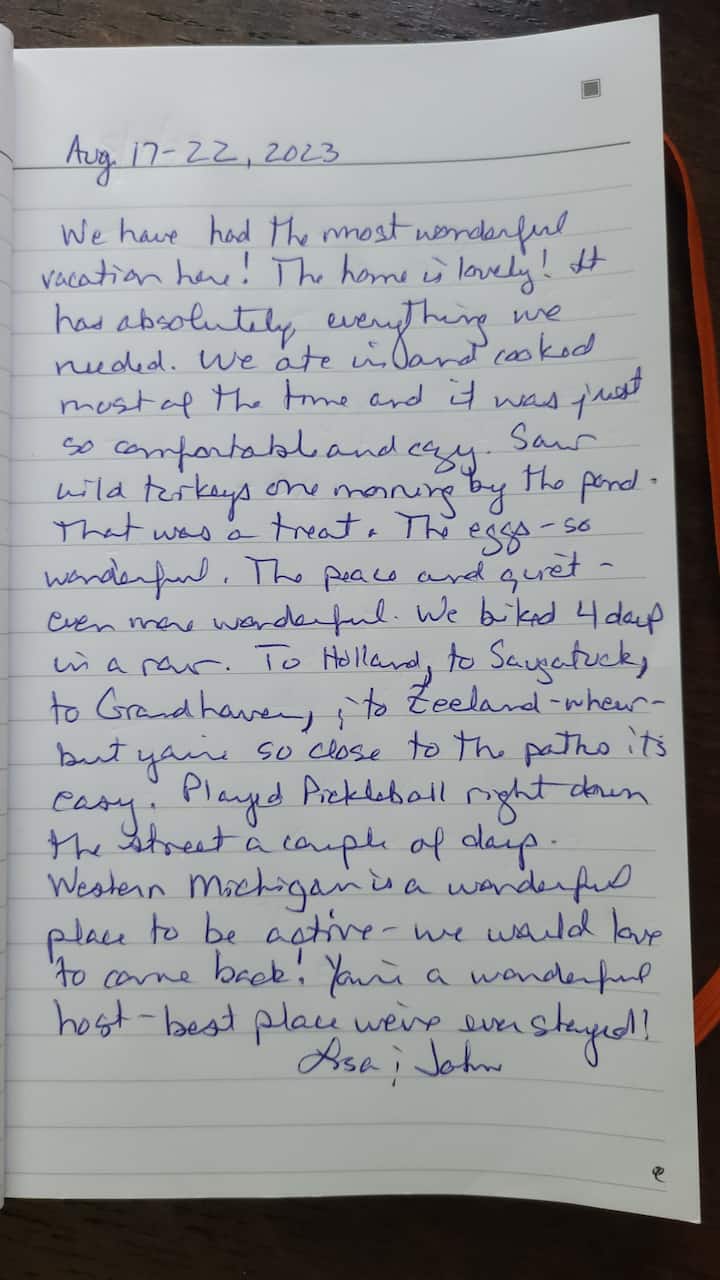 Aug. 17-22, 2023
We have had the most wonderful
vacation here! The home is lovely! It
has absolutely everything we
needed. We ate in and cooked
most of the time and it was just
so comfortable and cozy. Saw
wild terkeys one morning by the pond.
That was a treat. The eggs - so
wonderful. The peace and quiet -
even more wonderful. We biked 4 days
in a row. To Holland, to Saugatuck,
to Grandhaven, & to Zeeland - whew -
but you're so close to the paths it's
easy. Played Pickleball right down
the street a couple of days.
Western Michigan is a wonderful
place to be active - we would love
to come back! You're a wonderful
host - best place we've ever stayed!
Lisa & John